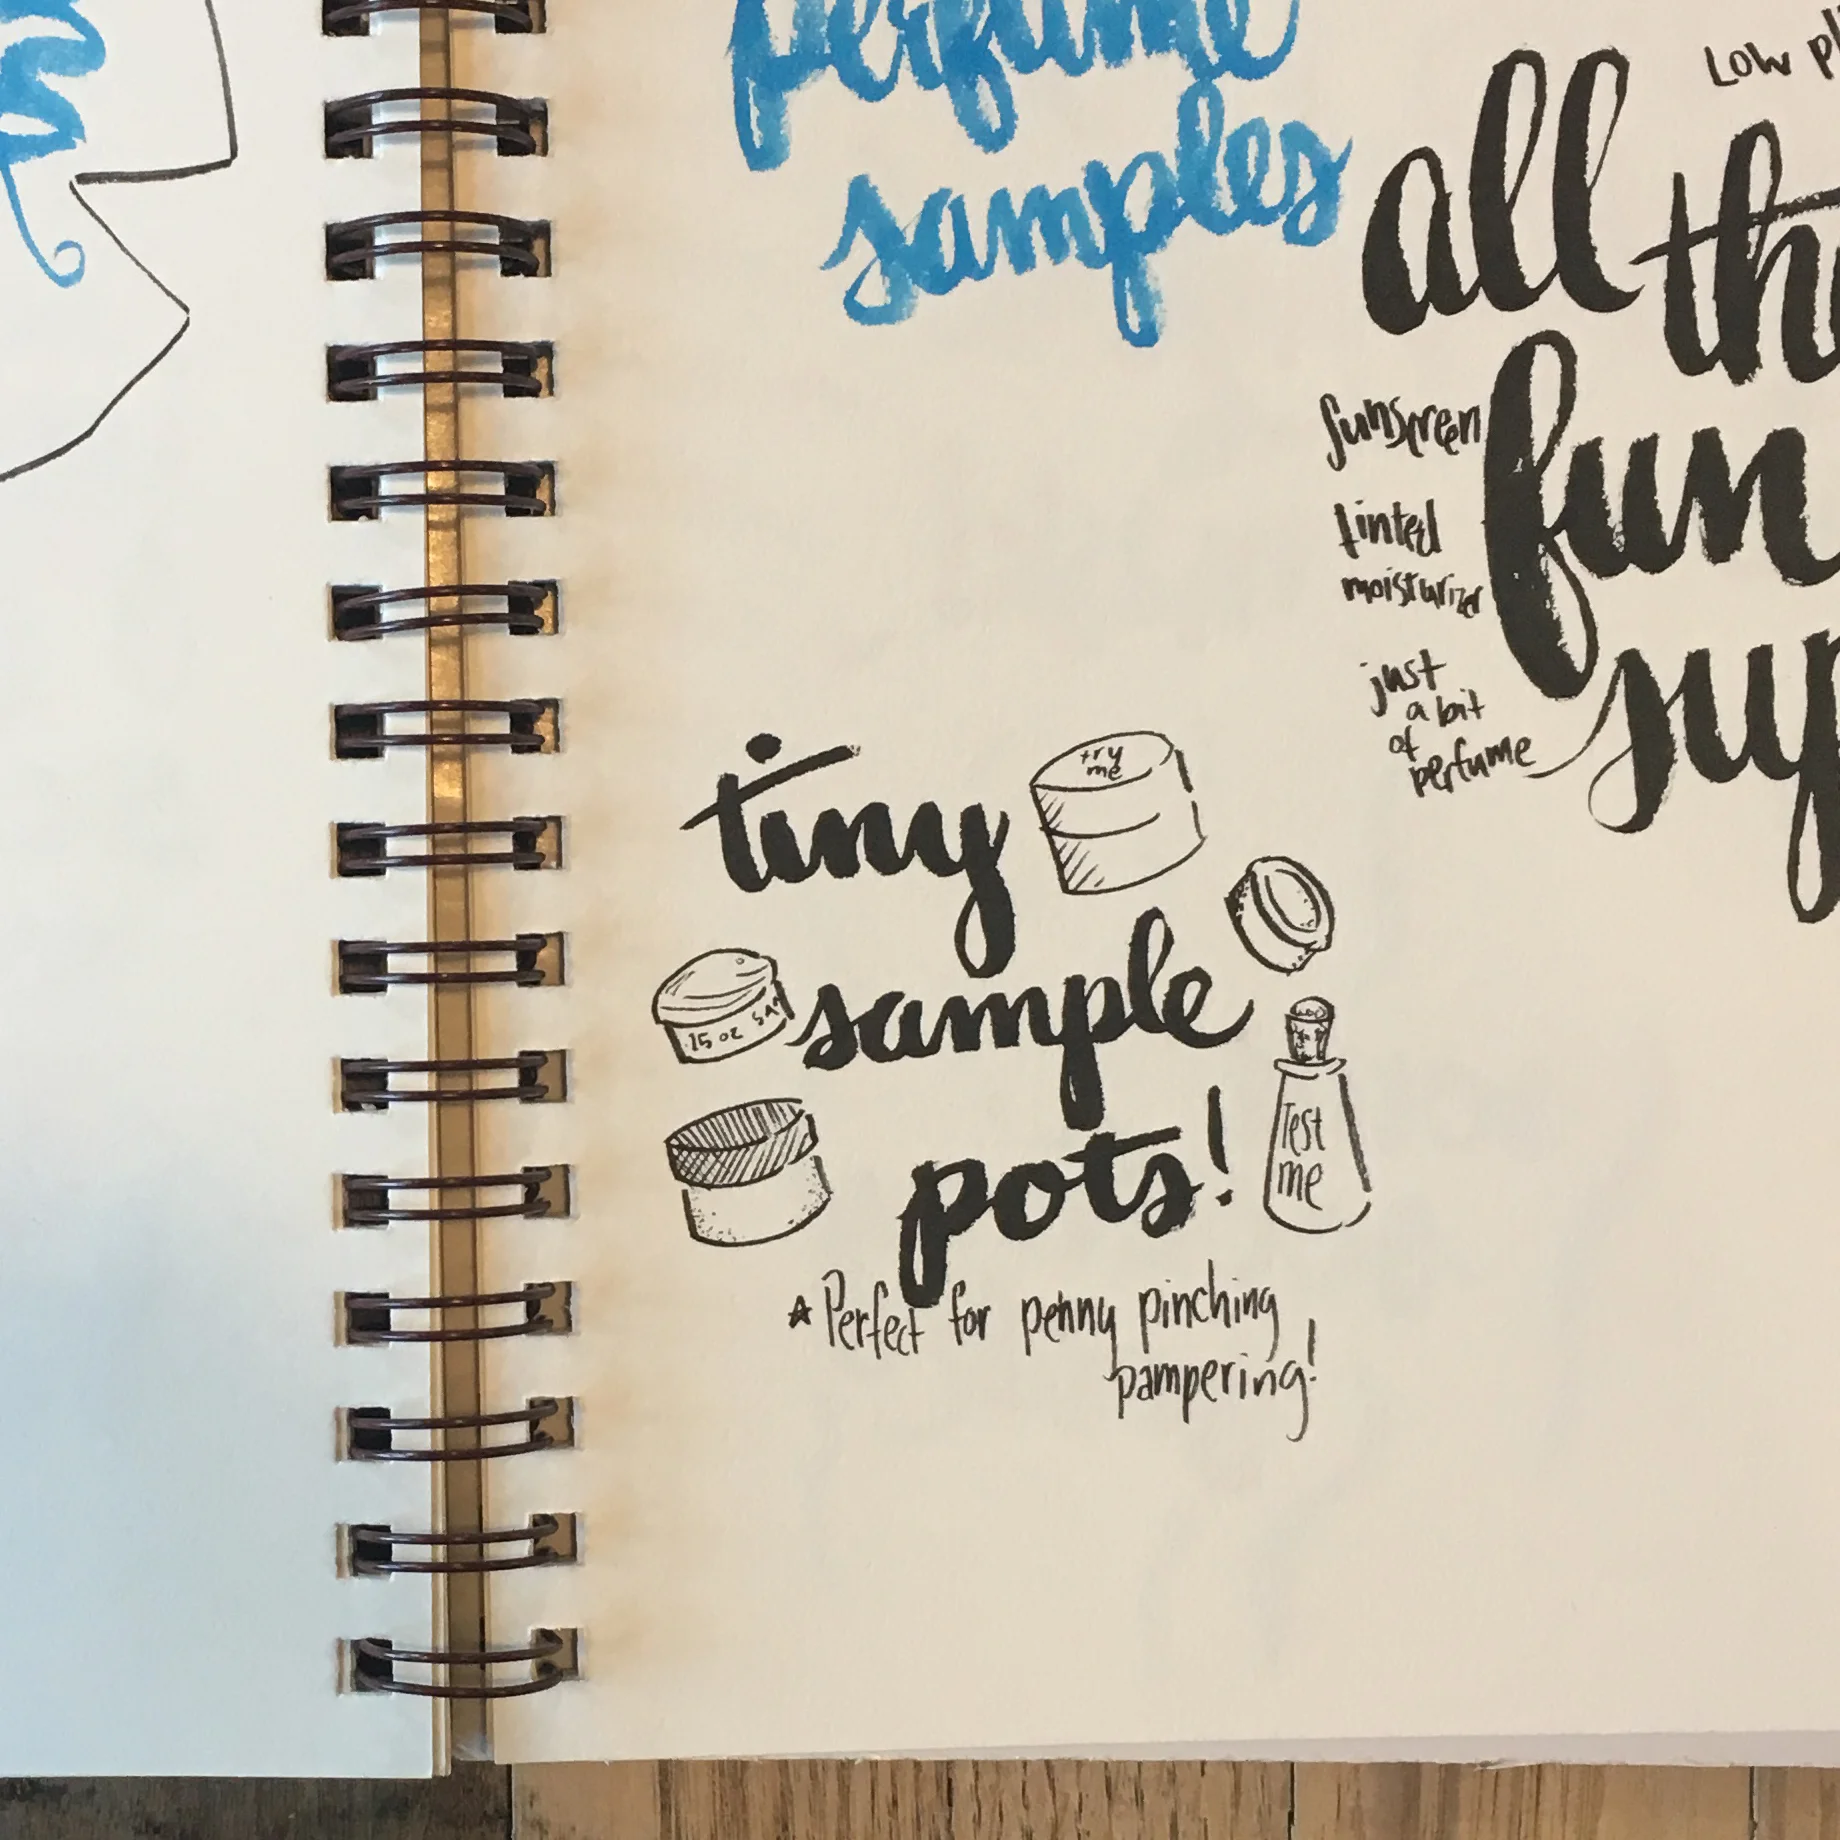 perfume
samples
Low
all
fun
sunscreen
tinted
moisturizer
just
a bit
of
perfume
tiny
try
me
sample
.15 oz
pots!
Test
me
*Perfect for penny pinching
pampering!